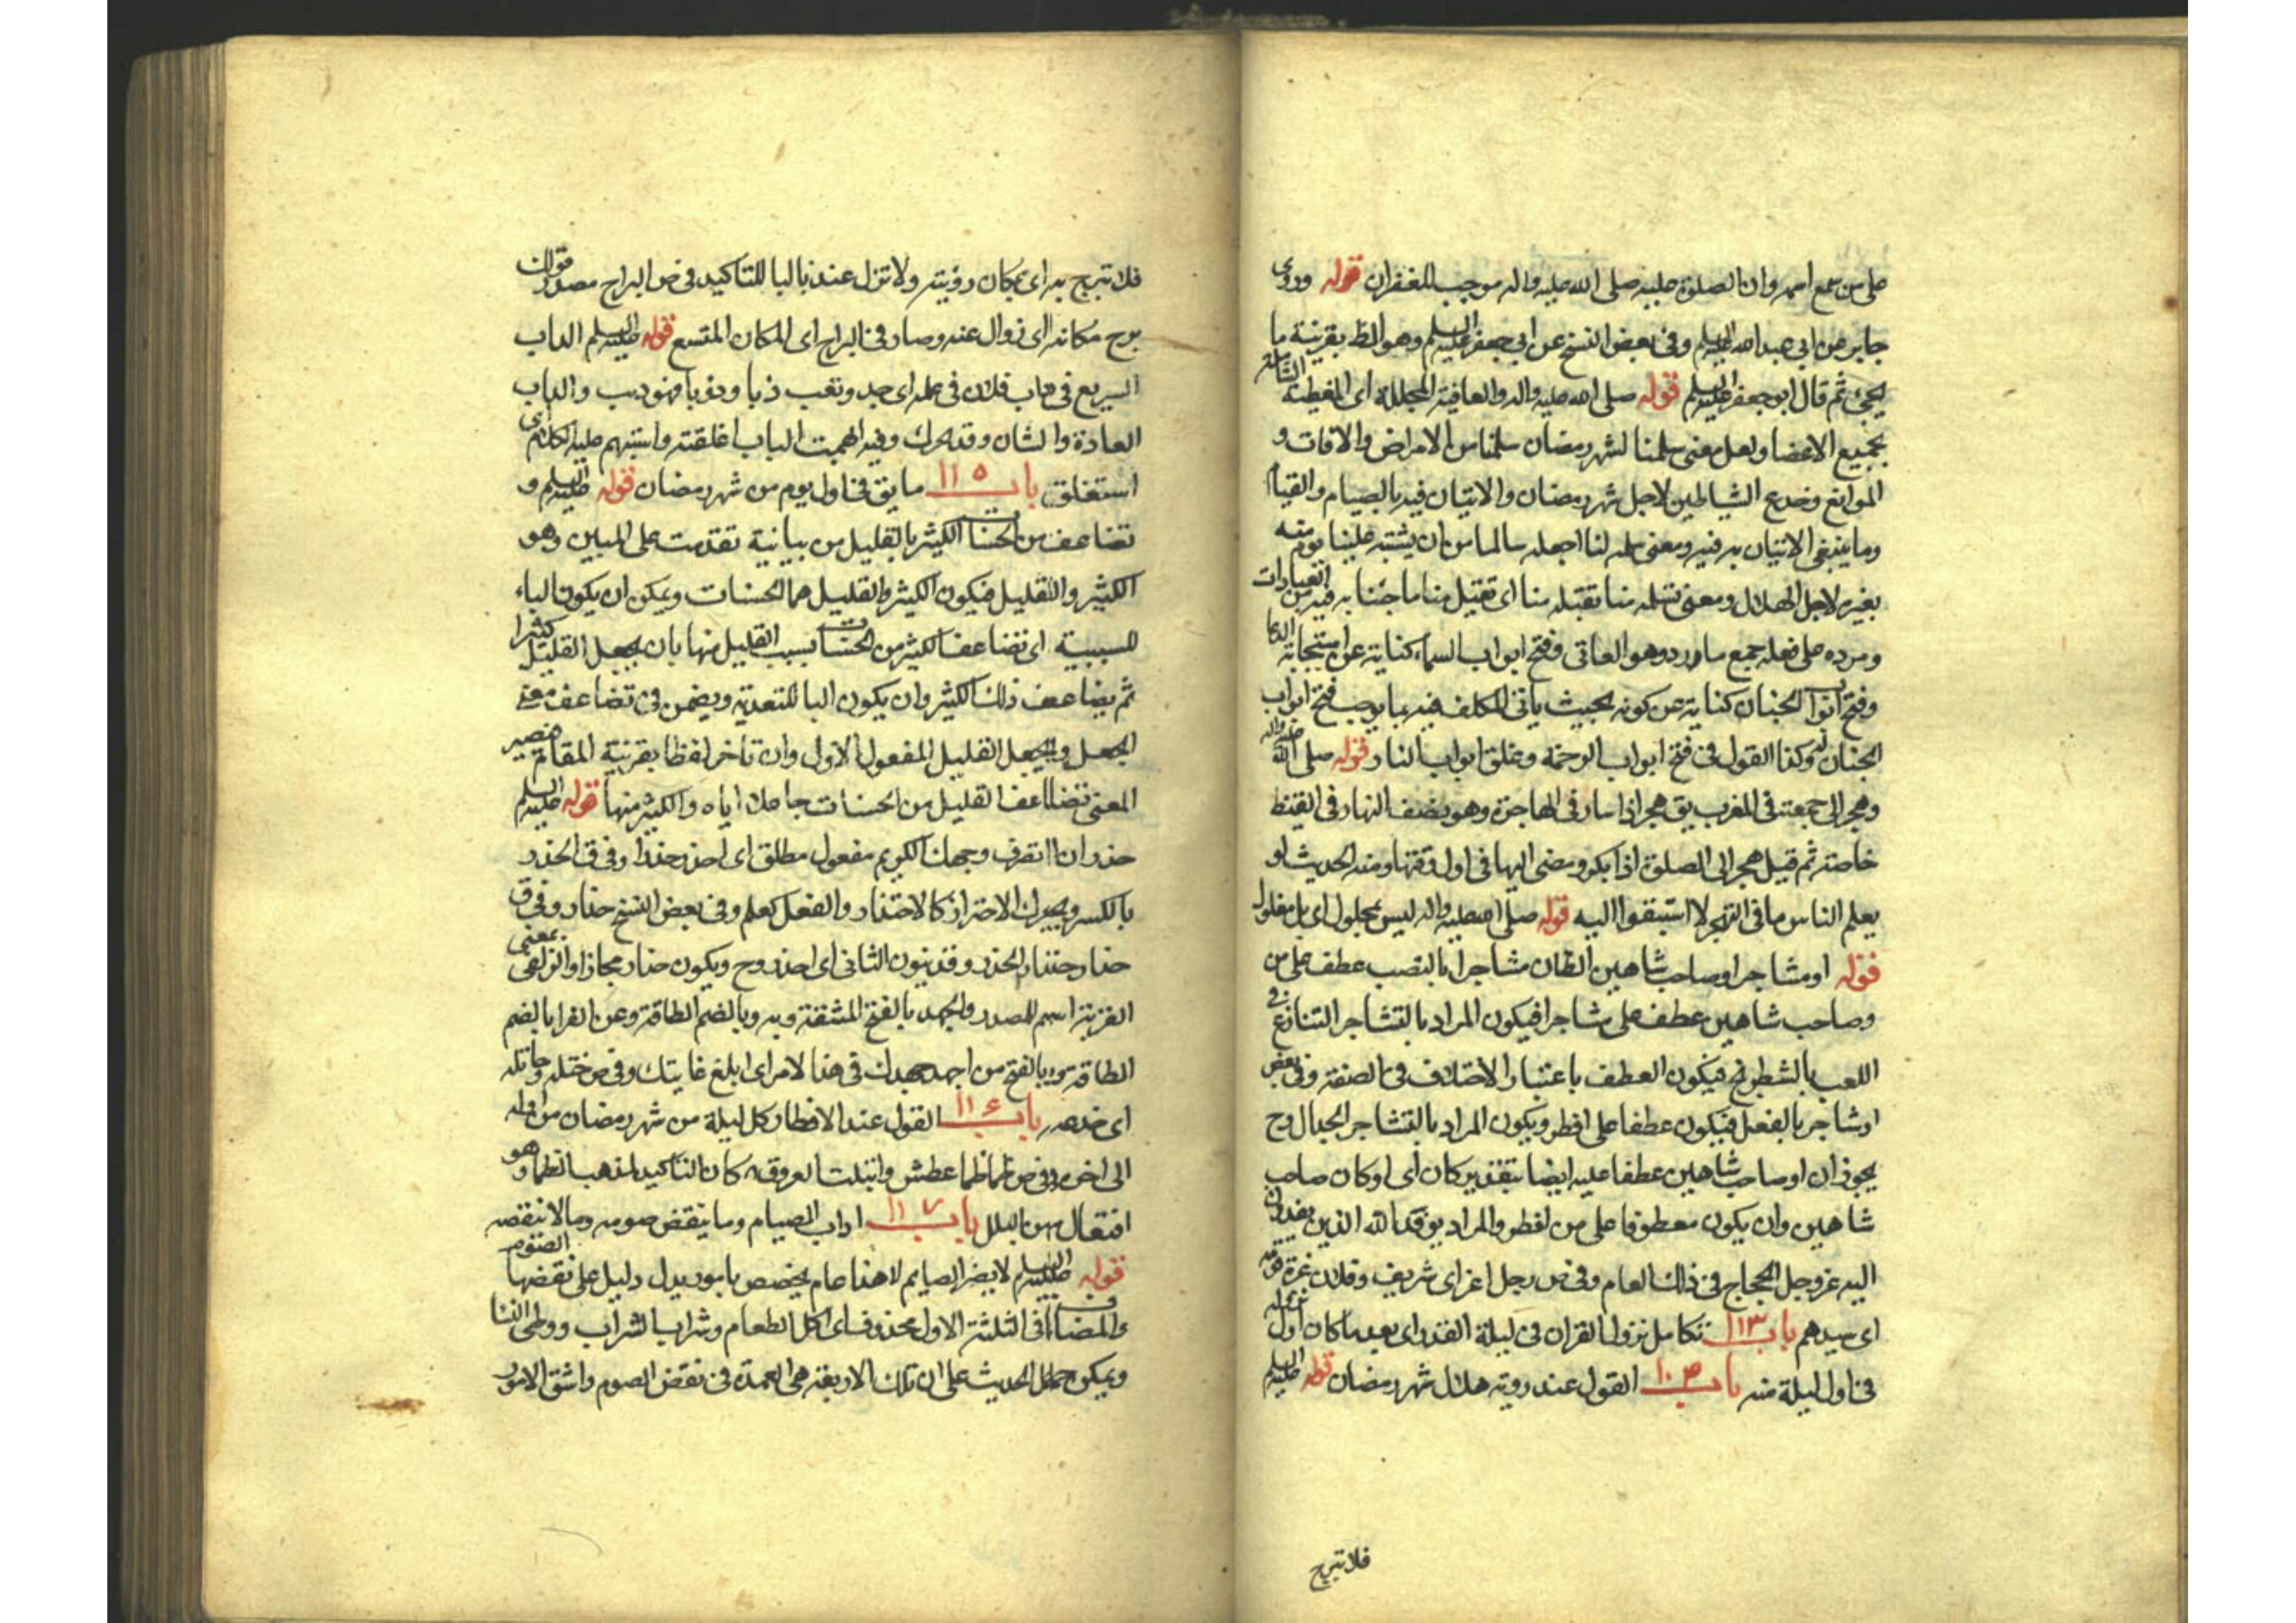 على من سمع اسمه وان الصلوة عليه صلى الله عليه واله موجب للغفران قوله وروى
جابر عن ابي عبد الله عليه السلم وفي بعض النسخ عن ابي جعفر عليه السلم وهو الظ بقرينة ما
يجئ ثم قال ابو جعفر عليه السلم قوله صلى الله عليه واله والعافية المجللة اى المغطية الشاملة
بجميع الاعضا ولعل معنى سلمنا لشهر رمضان سلمنا من الامراض والافات و
الموانع وخدع الشياطين لاجل شهر رمضان والاتيان فيه بالصيام والقيام
وما ينبغي الاتيان به فيه ومعنى سلمه لنا اجعله سالما من ان يشتبه علينا يوم منه
بغيره لاجل الهلال ومعنى تسلمه منا تقبله منا اى تقبل منا ما جئنا به فيه من العبادات
ومرده على فعله جميع ما ورد وهو العاتى وفتح ابواب السماء كناية عن استجابة الدعا
وفتح ابواب الجنان كناية عن كونه بحيث ياتى المكلف فيه بما يوجب فتح ابواب
الجنان له وكذا القول في فتح ابواب الرحمة وغلق ابواب النار قوله صلى الله عليه واله
وهجر الى جمعته في المغرب يق هجر اذا سار في الهاجرة وهو نصف النهار في القيظ
خاصة ثم قيل هجر الى الصلوة اذا بكر ومضى اليها في اول وقتها ومنه الحديث لو
يعلم الناس ما في التهجر لا استبقوا اليه قوله صلى الله عليه واله ليس بمحلول اى بل مغلول
قوله او مشاجرا وصاحب شاهين الظان مشاجرا بالنصب عطف على من
وصاحب شاهين عطف على مشاجرا فيكون المراد بالتشاجر التنازع في
اللعب بالشطرنج فيكون العطف باعتبار الاختلاف في الصنفة وفي بعض
اوشاجر بالفعل فيكون عطفا على افطر ويكون المراد بالتشاجر الجدال وح
يجوز ان او صاحب شاهين عطفا عليه ايضا بتقدير كان اى او كان صاحب
شاهين وان يكون معطوفا على من افطر والمراد بوفد الله الذين يفدون
اليه عز وجل الحجاج في ذلك العام وفي ص رجل اغر اى شريف وفلان غرة قومه
اى سيدهم باب ١١٣ تكامل نزول القران في ليلة القدر اى بعد ما كان اول نزوله
في اول ليلة منه باب القول عند روية هلال شهر رمضان قوله عليه السلم
فلا تبرح
فلا تبرح به اى بمكان رؤيته ولا تزل عنه فالبا للتاكيد في ص البراح مصدر قولك
برح مكانه اى زوال عنه وصار في البراح اى المكان المتسع قوله عليه السلم الداب
السريع في داب فلان في عمله اى جد وتعب ذبا ودؤبا فهو ديب والداب
العادة والشان وقد يحرك وفيه ابهمت الباب اغلقته واستبهم عليه الكلام اى
استغلق باب ١١٥ ما يق في اول يوم من شهر رمضان قوله عليه السلم و
تضاعف من الحسنات الكثير بالقليل من بيانية تقدمت على المبين وهو
الكثير والقليل فيكون الكثير والقليل هما الحسنات ويمكن ان يكون الباء
للسببية اى تضاعف الكثير من الحسنات بسبب القليل منها بان يجعل القليل كثيرا
ثم يضاعف ذلك الكثير وان يكون البا للتعدية ويضمن في تضاعف معنى
الجعل ويجعل القليل المفعول الاول وان تاخر لفظا بقرينة المقام فيصير
المعنى تضاعف القليل من الحسنات جاعلا اياه والكثير منها قوله عليه السلم
حذر انا اتعرف وجهك الكريم مفعول مطلق اى احذر حذرا وفي ق الحذر
بالكسر ويحرك الاحتراز كالاحتذار والفعل كعلم وفي بعض النسخ حذار وفي ق
حذار حذار الحذر وقد ينون الثاني اى احذر وح ويكون حذار مجازا او
اسم للمصدر والجهد بالفتح المشقة وبه وبالضم الطاقة وعن الفرا بالضم
الطاقة وبالفتح من اجهد جهدك في هذا الامر اى ابلغ غايتك وفي ص ختله وخاتله
اى خدعه باب ١١٦ القول عند الافطار كل ليلة من شهر رمضان من اوله
الى اخره وفي ص ظما ظما عطش وابتلت العروق كان التاكيد لذهب الظما وهو
افتعال من البلل باب ١١٧ اداب الصيام وما ينقض صومه وما لا ينقضه
قوله عليه السلم لا يضر الصايم لا هذا عام يخصص بامور يدل دليل على نقضها الصوم
والمضاف في الثلثة الاول محذوف اى اكل الطعام وشراب الشراب ووطى النسا
ويمكن حمل الحديث على ان تلك الاربعة هى العمدة في نقض الصوم واشق الامور